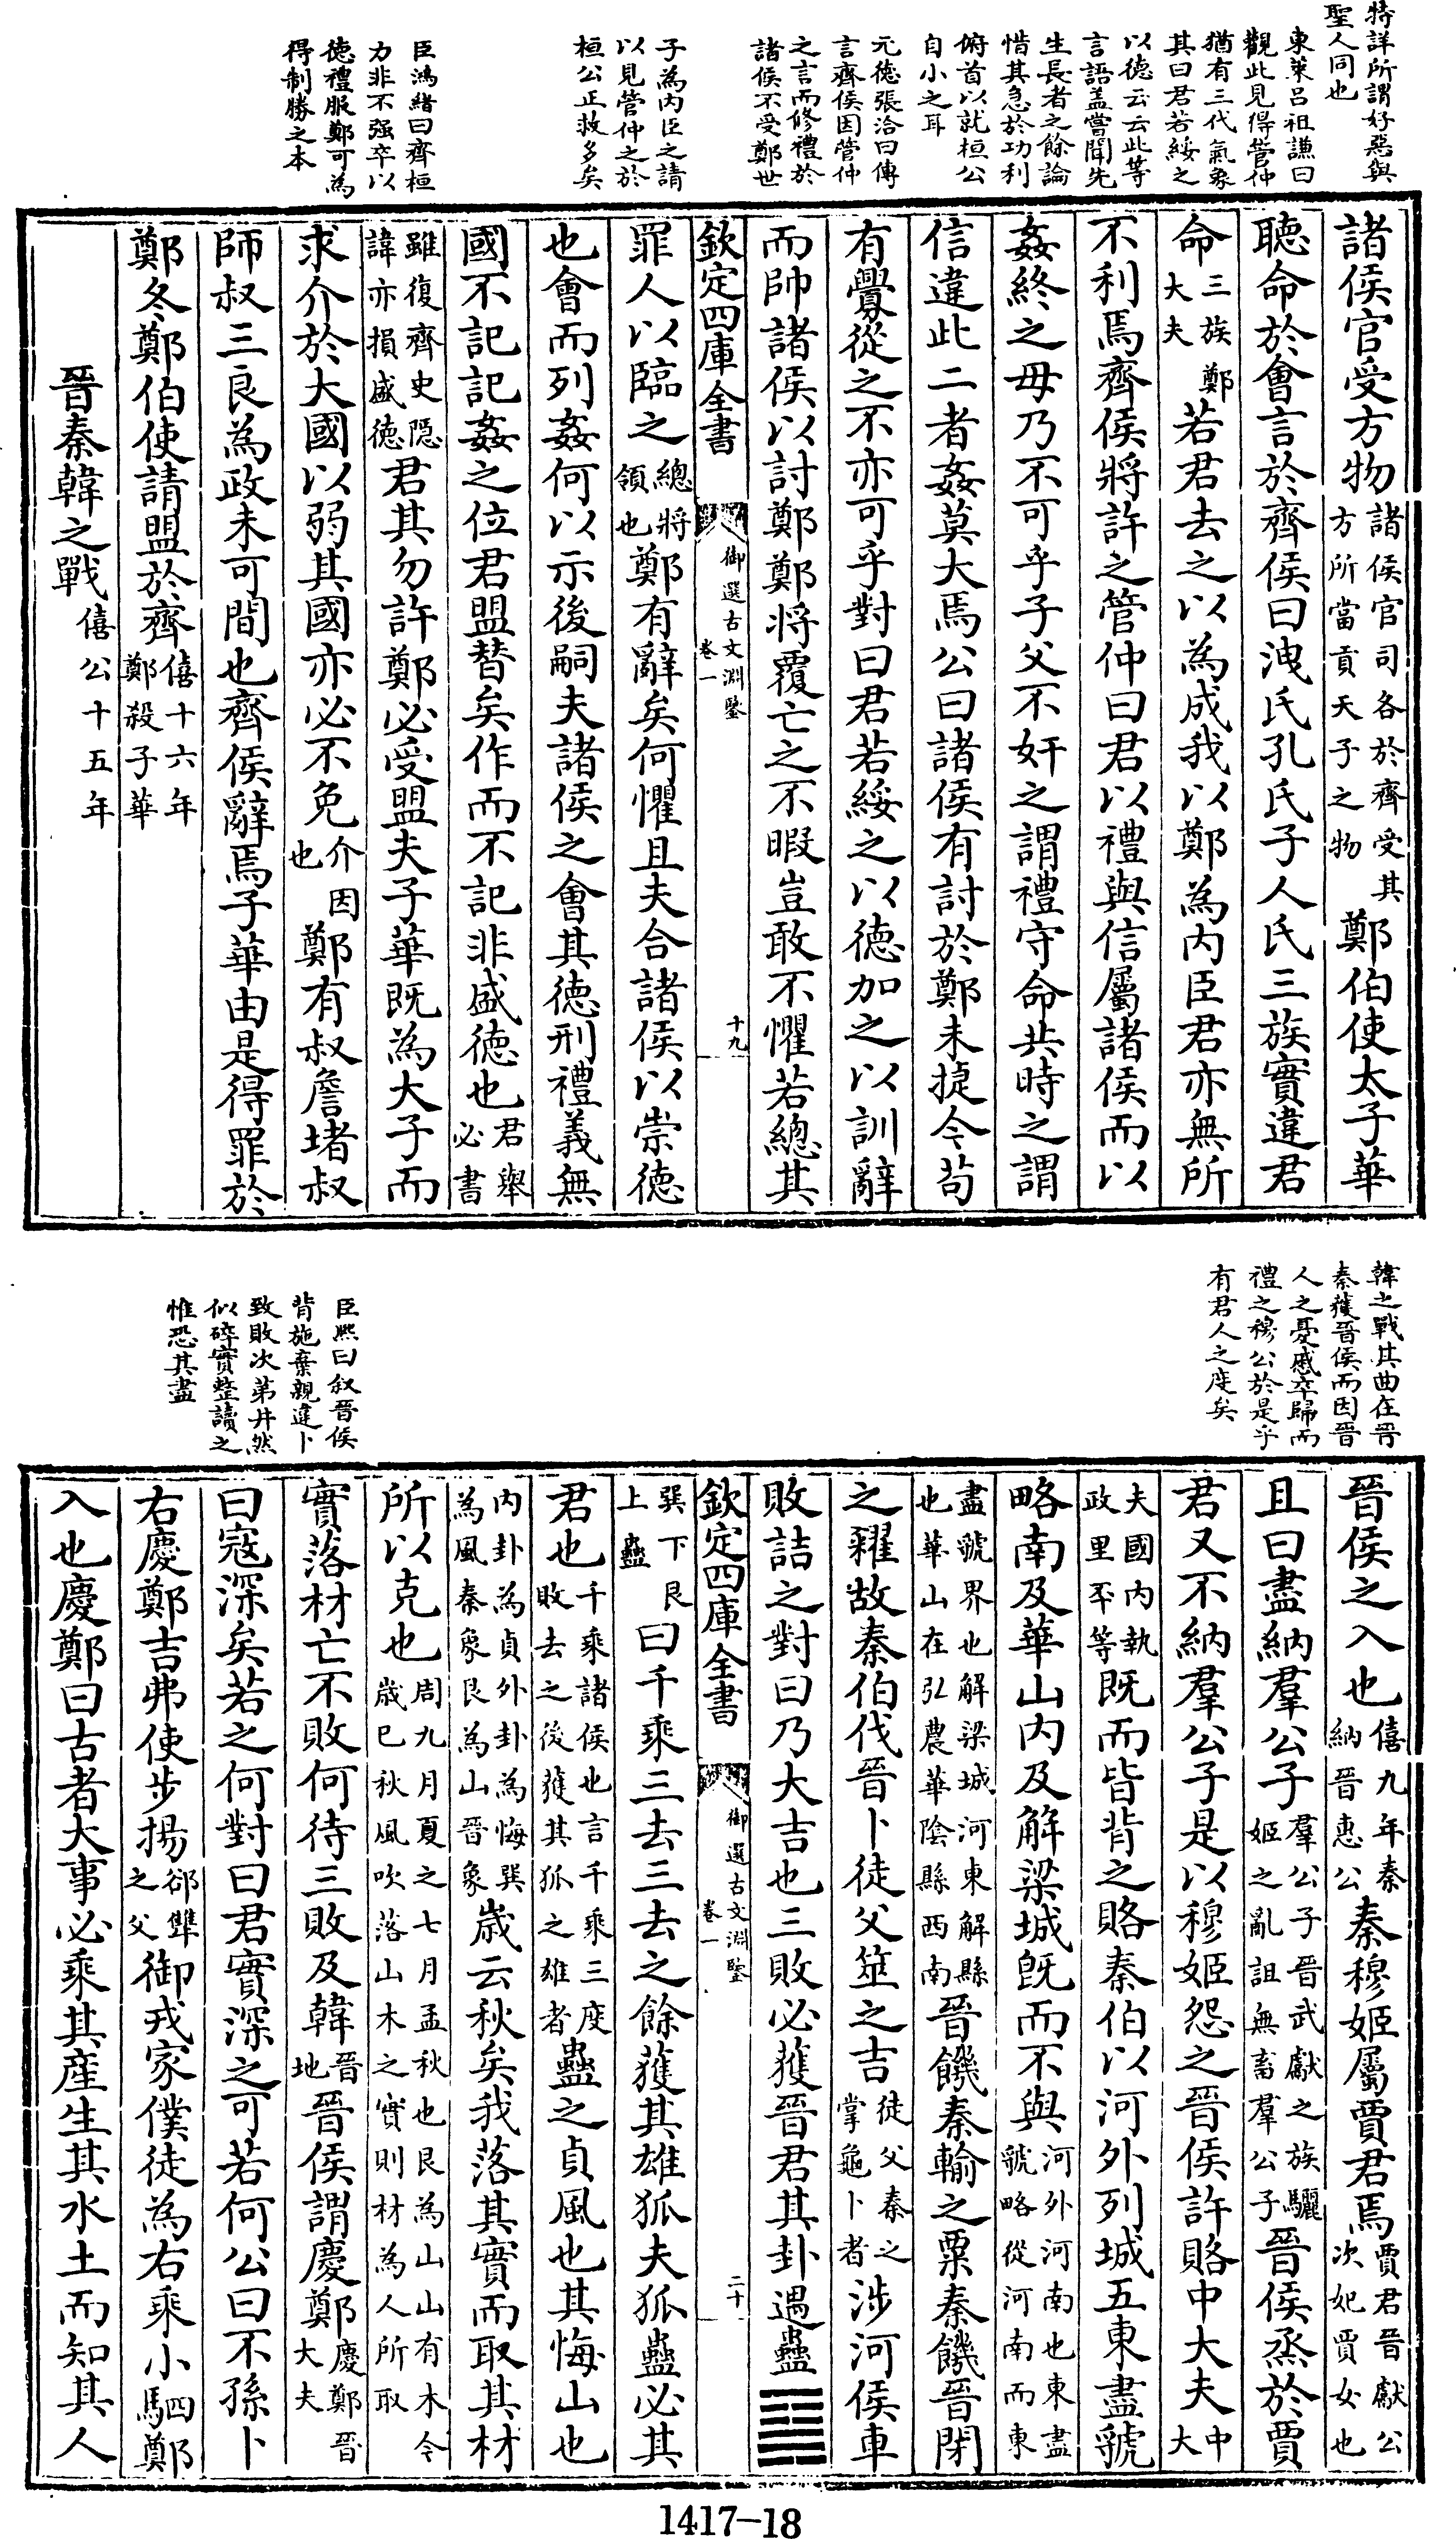 特詳所謂好惡與
聖人同也
東萊呂祖謙曰
觀此見得管仲
猶有三代氣象
其曰君若綏之
以德云云此等
言語盖嘗聞先
生長者之餘論
惜其急於功利
俯首以就桓公
自小之耳
元德張洽曰傳
言齊侯因管仲
之言而修禮於
諸侯不受鄭世
子為内臣之請
以見管仲之於
桓公正救多矣
臣鴻緒曰齊桓
力非不强卒以
德禮服鄭可為
得制勝之本
諸侯官受方物諸侯官司各於齊受其方所當貢天子之物鄭伯使太子華
聽命於會言於齊侯曰洩氏孔氏子人氏三族實違君
命三族鄭大夫若君去之以為成我以鄭為内臣君亦無所
不利焉齊侯將許之管仲曰君以禮與信屬諸侯而以
姦終之毋乃不可乎子父不奸之謂禮守命共時之謂
信違此二者姦莫大焉公曰諸侯有討於鄭未捷今苟
有釁從之不亦可乎對曰君若綏之以德加之以訓辭
而帥諸侯以討鄭鄭將覆亡之不暇豈敢不懼若總其
欽定四庫全書 御選古文淵鑒 卷一 十九
罪人以臨之總將領也鄭有辭矣何懼且夫合諸侯以崇德
也會而列姦何以示後嗣夫諸侯之會其德刑禮義無
國不記記姦之位君盟替矣作而不記非盛德也君舉必書
雖復齊史隱諱亦損盛德君其勿許鄭必受盟夫子華既為大子而
求介於大國以弱其國亦必不免介因也鄭有叔詹堵叔
師叔三良為政未可間也齊侯辭焉子華由是得罪於
鄭冬鄭伯使請盟於齊僖十六年鄭殺子華
晉秦韓之戰僖公十五年
韓之戰其曲在晉
秦獲晉侯而因晉
人之憂戚卒歸而
禮之穆公於是乎
有君人之度矣
臣熙曰叙晉侯
背施棄親違卜
致敗次第井然
似碎實整讀之
惟恐其盡
晉侯之入也僖九年秦納晉惠公秦穆姬屬賈君焉賈君晉獻公次妃賈女也
且曰盡納羣公子羣公子晉武獻之族驪姬之亂詛無畜羣公子晉侯烝於賈
君又不納羣公子是以穆姬怨之晉侯許賂中大夫中大
夫國内執政里丕等既而皆背之賂秦伯以河外列城五東盡虢
略南及華山内及解梁城既而不與河外河南也東盡虢略從河南而東
盡虢界也解梁城河東解縣也華山在弘農華陰縣西南晉饑秦輸之粟秦饑晉閉
之糴故秦伯伐晉卜徒父筮之吉徒父秦之掌龜卜者涉河侯車
敗詰之對曰乃大吉也三敗必獲晉君其卦遇蠱
欽定四庫全書 御選古文淵鑒 卷一 二十
巽下艮上蠱曰千乘三去三去之餘獲其雄狐夫狐蠱必其
君也千乘諸侯也言千乘三度敗去之後獲其狐之雄者蠱之貞風也其悔山也
内卦為貞外卦為悔巽為風秦象艮為山晉象歲云秋矣我落其實而取其材
所以克也周九月夏之七月孟秋也艮為山山有木今歲已秋風吹落山木之實則材為人所取
實落材亡不敗何待三敗及韓晉地晉侯謂慶鄭慶鄭晉大夫
曰寇深矣若之何對曰君實深之可若何公曰不孫卜
右慶鄭吉弗使步揚郤犨之父御戎家僕徒為右乘小駟鄭
入也慶鄭曰古者大事必乘其産生其水土而知其人
1417-18